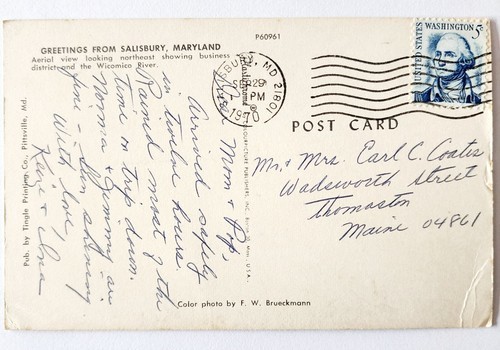 P60961
GREETINGS FROM SALISBURY, MARYLAND
Aerial view looking northeast showing business
district and the Wicomico River.
Pub. by Tingle Printing Co., Pittsville, Md.
Mom & Pop,
Arrived safely
in twelve hours.
Rained most of the
time on trip down.
Norma & Jimmy are
fine - Sun shining
With love,
& Ina
MD. 21801
29
PM
1970
UNITED STATES
WASHINGTON 5c
POST CARD
Mr. & Mrs. Earl C. Coates
Wadsworth Street
Thomaston
Maine 04861
Color photo by F. W. Brueckmann